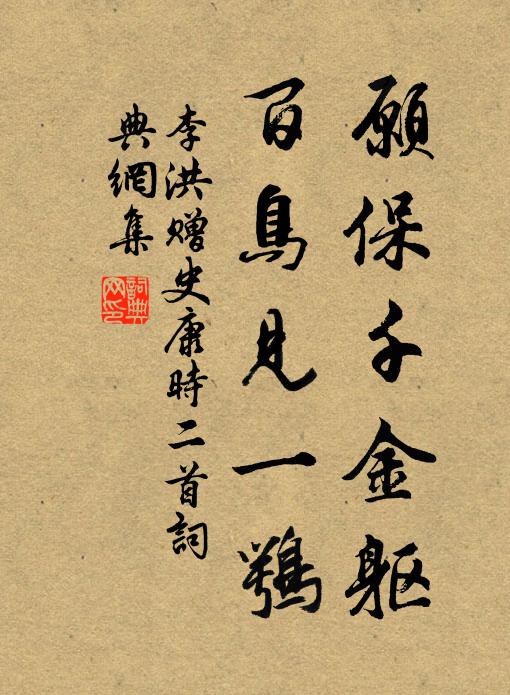 願保千金軀
百鳥見一鶚
李洪贈史康時二首詞
典網集
詞典網印